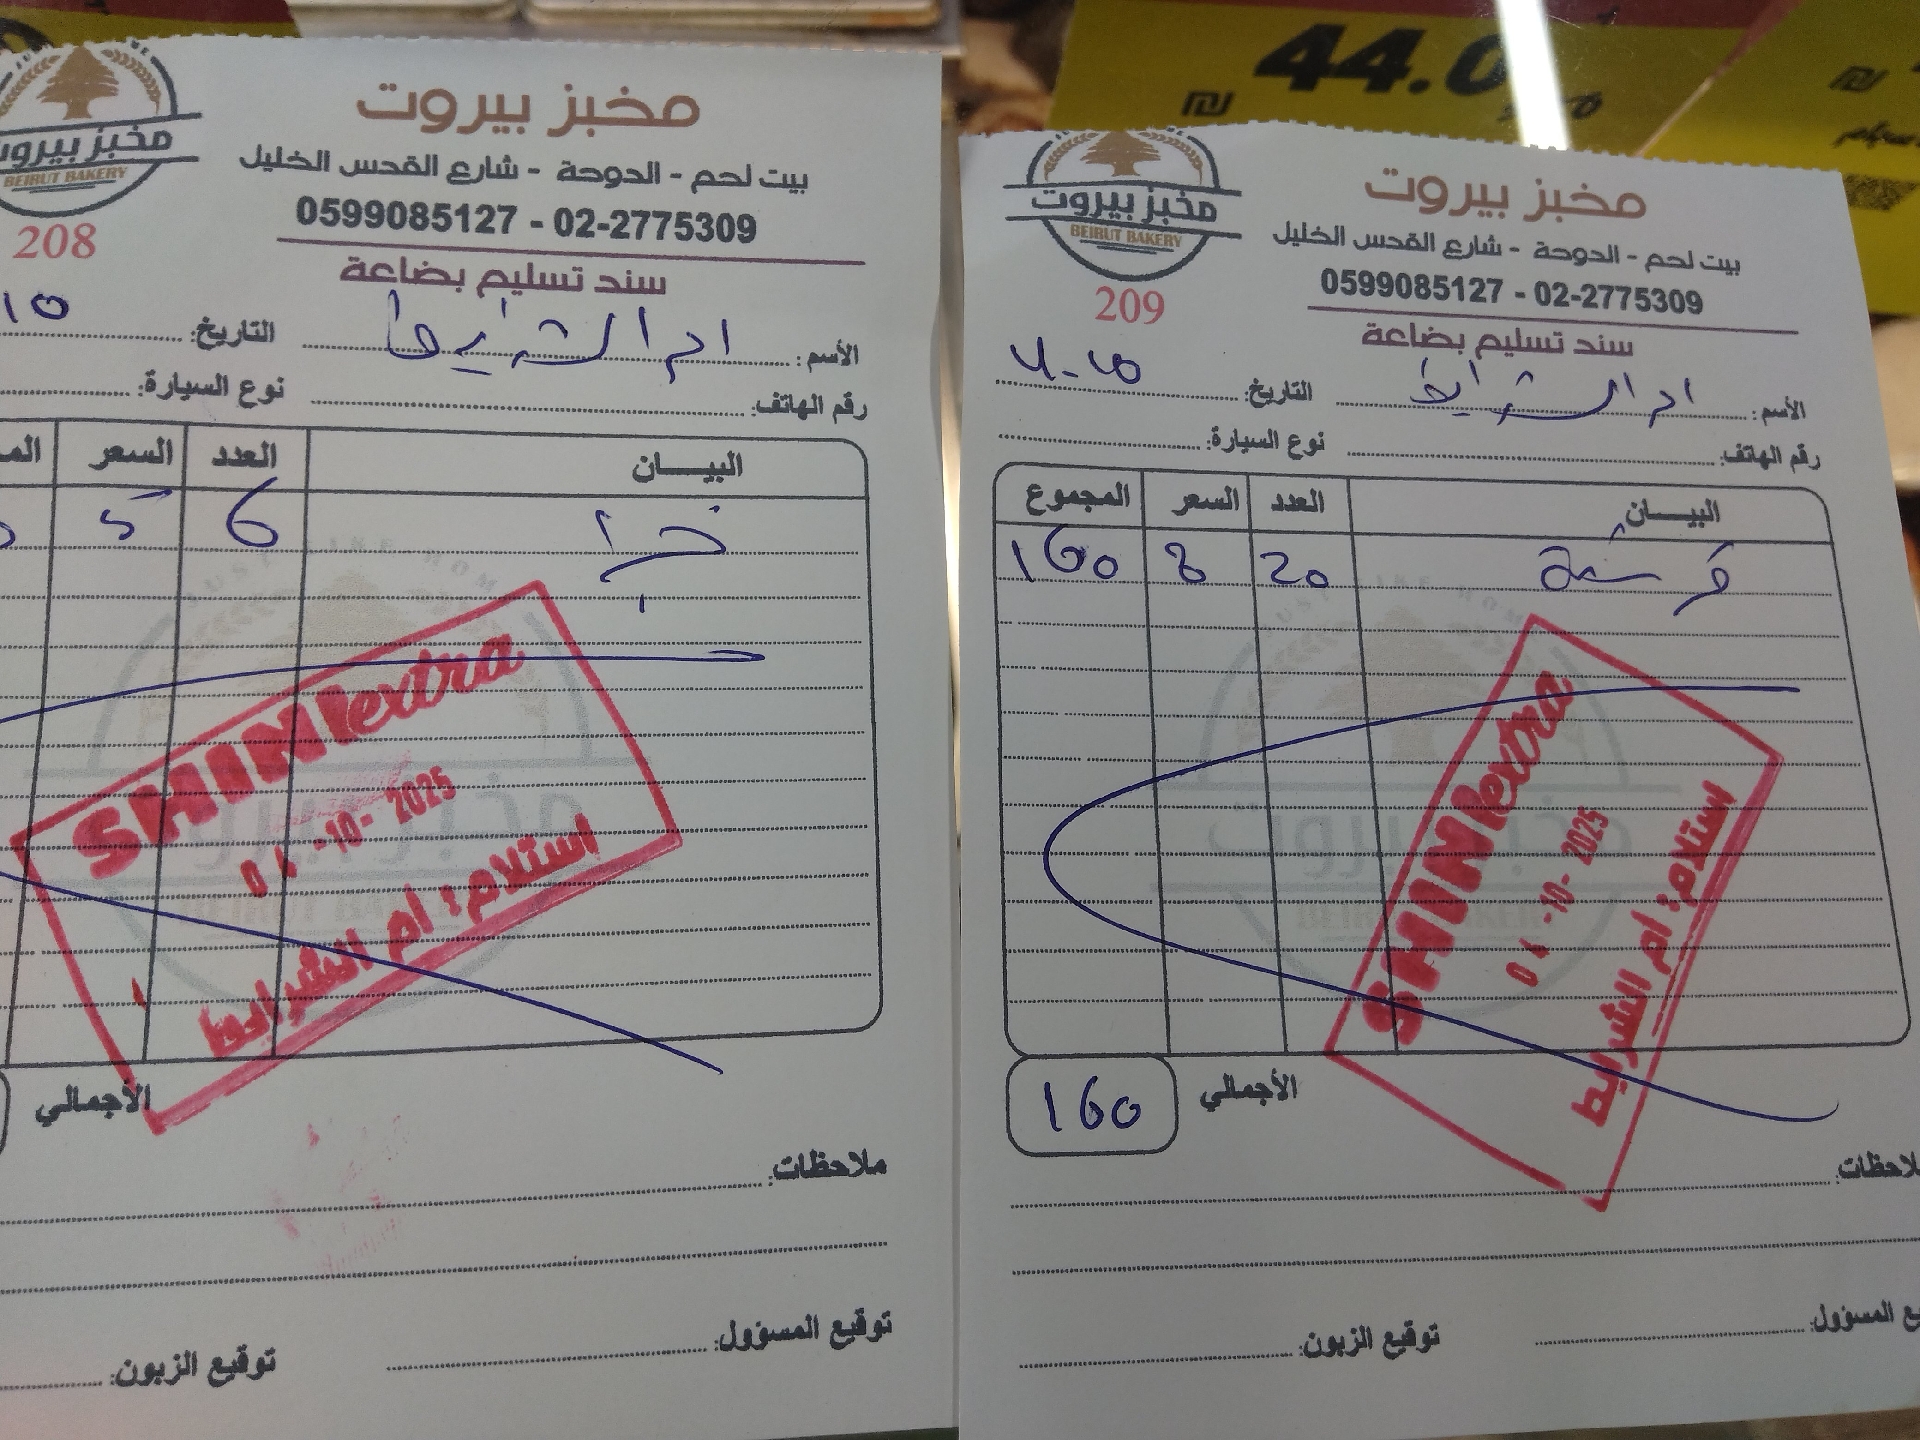 44.0
₪
₪
مخبز بيروت
BEIRUT BAKERY
208
مخبز بيروت
بيت لحم - الدوحة - شارع القدس الخليل
0599085127 - 02-2775309
سند تسليم بضاعة
الأسم: ام الشرايط
التاريخ: 10
رقم الهاتف:
نوع السيارة:
البيـــان العدد السعر
6 5
SHINI extra
04 -10- 2025
استلام: أم الشرايط
الأجمالي
ملاحظات:
توقيع المسؤول:
توقيع الزبون:
مخبز بيروت
BEIRUT BAKERY
209
مخبز بيروت
بيت لحم - الدوحة - شارع القدس الخليل
0599085127 - 02-2775309
سند تسليم بضاعة
الأسم: ام الشرايط
التاريخ:
رقم الهاتف:
نوع السيارة:
البيـــان العدد السعر المجموع
فرشة 20 8 160
SHINI extra
04 -10- 2025
استلام: أم الشرايط
الأجمالي 160
ملاحظات:
المسؤول:
توقيع الزبون: